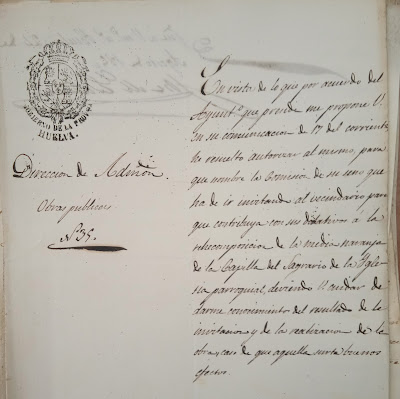 GOBIERNO DE LA PROV.
HUELVA.
Direccion de Admón.
Obras publicas
Nº 35.
En vista de lo que por acuerdo del
Ayuntº que preside me propone V.
en su comunicacion de 17 del corriente,
he resuelto autorizar al mismo, para
que nombre la Comision de su seno que
ha de ir invitando al vecindario para
que contribuya con sus donativos a la
recomposicion de la media naranja
de la Capilla del Sagrario de la Igle
sia parroquial, debiendo V. cuidar de
darme conocimiento del resultado de la
invitacion y de la realizacion de la
obra, caso de que aquella surta buenos
efectos.